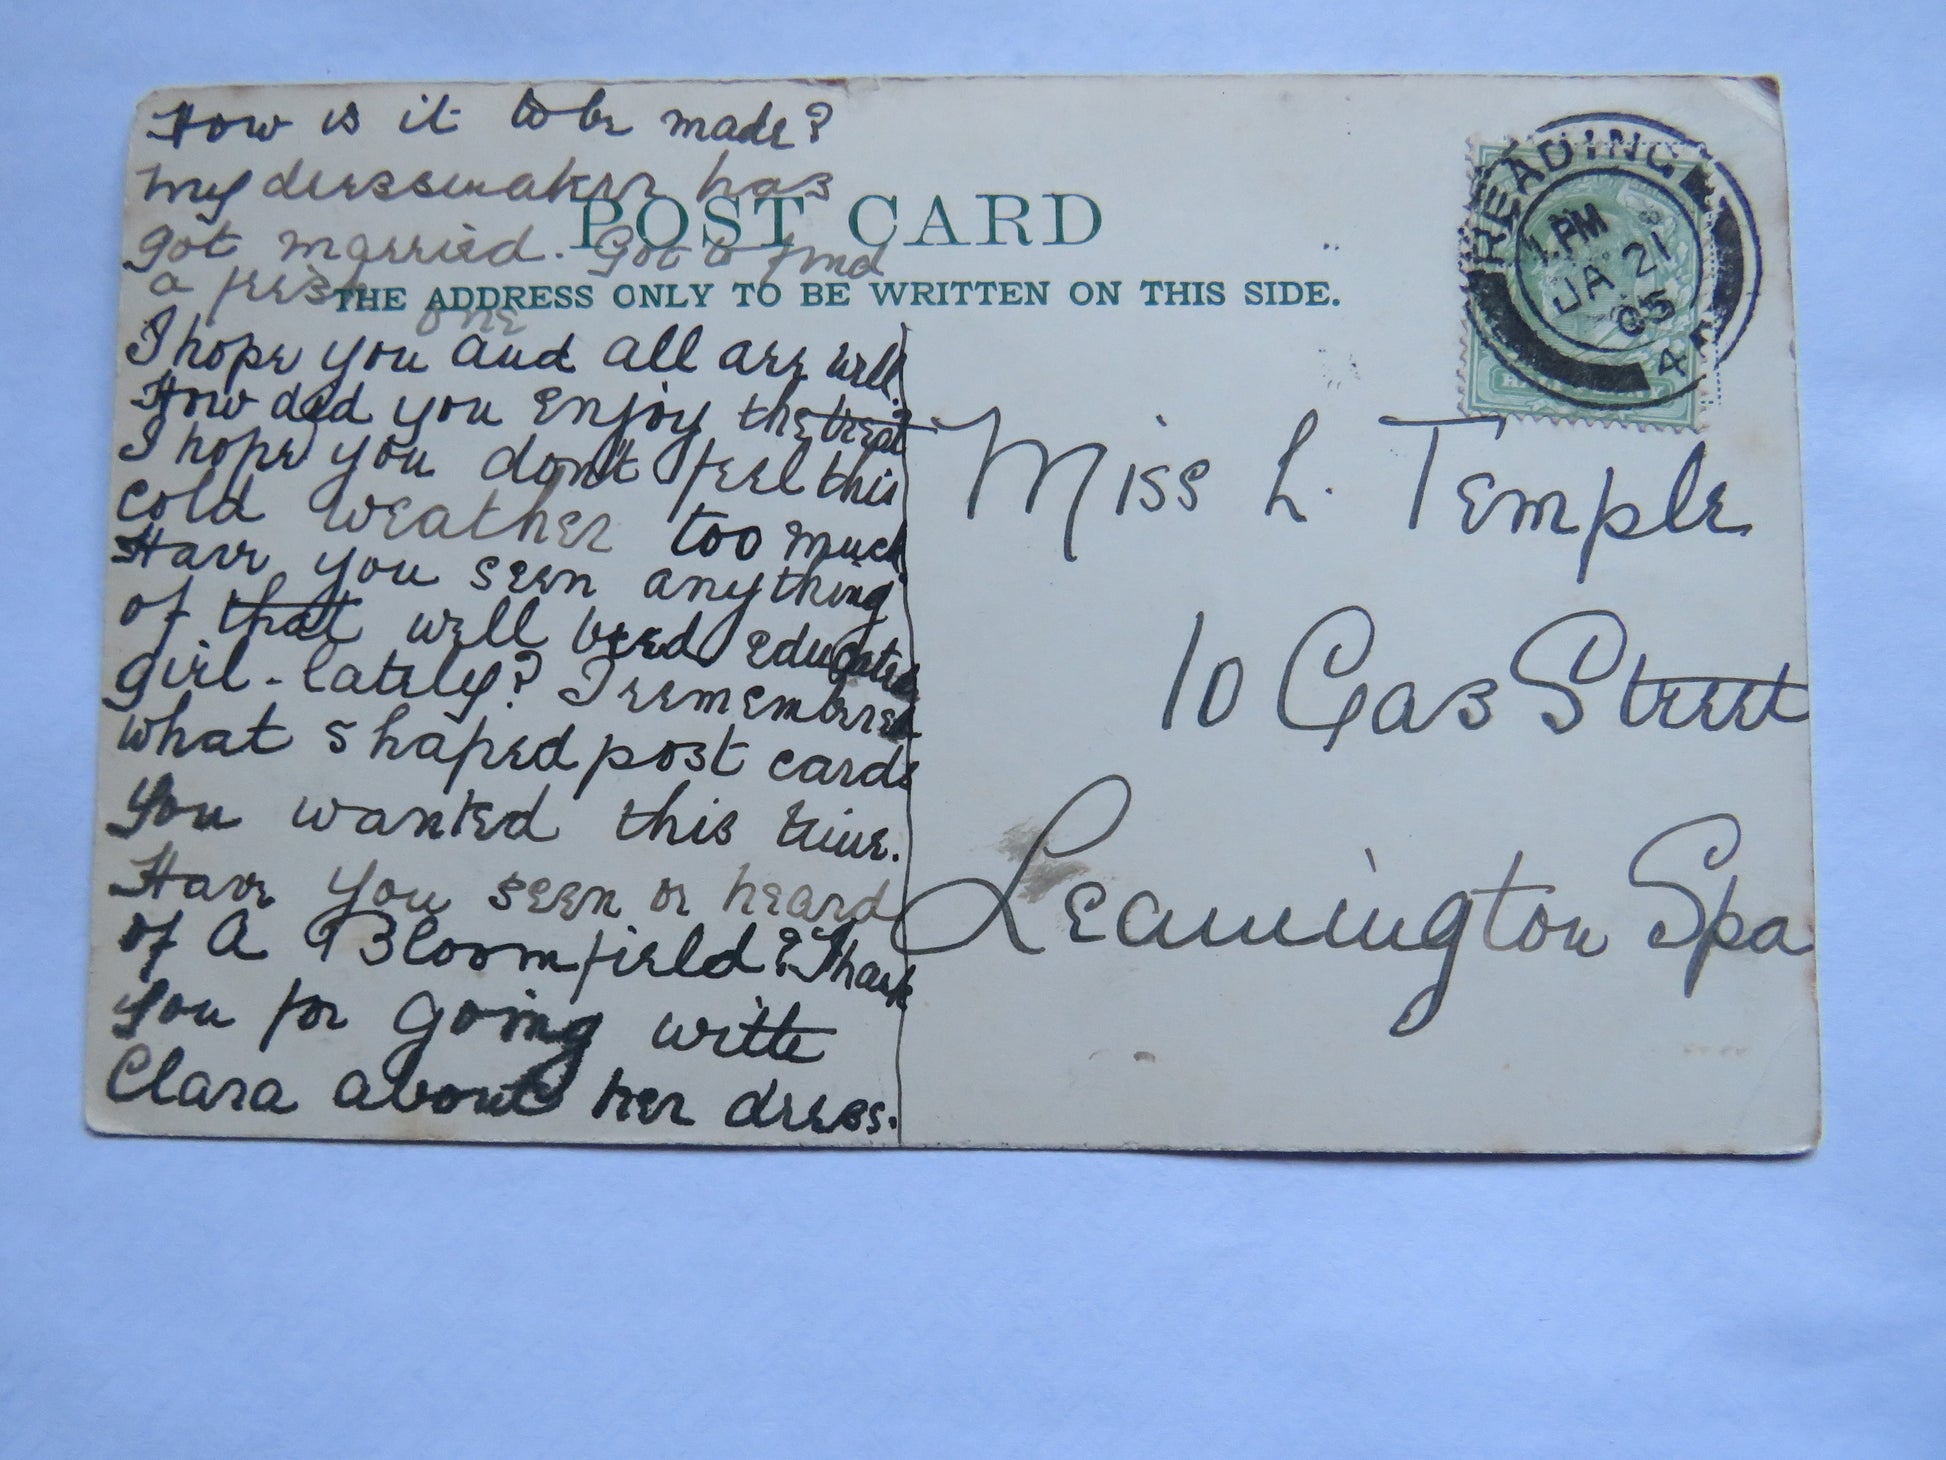 How is it to be made?
My dressmaker has
got married. Got to find
a fresh
one
I hope you and all are well.
How did you enjoy the treat?
I hope you don't feel this
cold weather too much
Have you seen anything
of that well bred, educated
girl - lately? I remembered
what shaped post cards
you wanted this time.
Have you seen or heard
of A Bloomfield? Thank
you for going witte
Clara about her dress.
POST CARD
THE ADDRESS ONLY TO BE WRITTEN ON THIS SIDE.
READING
1. PM
JA 21
05
4
Miss L. Temple
10 Gas Street
Leamington Spa